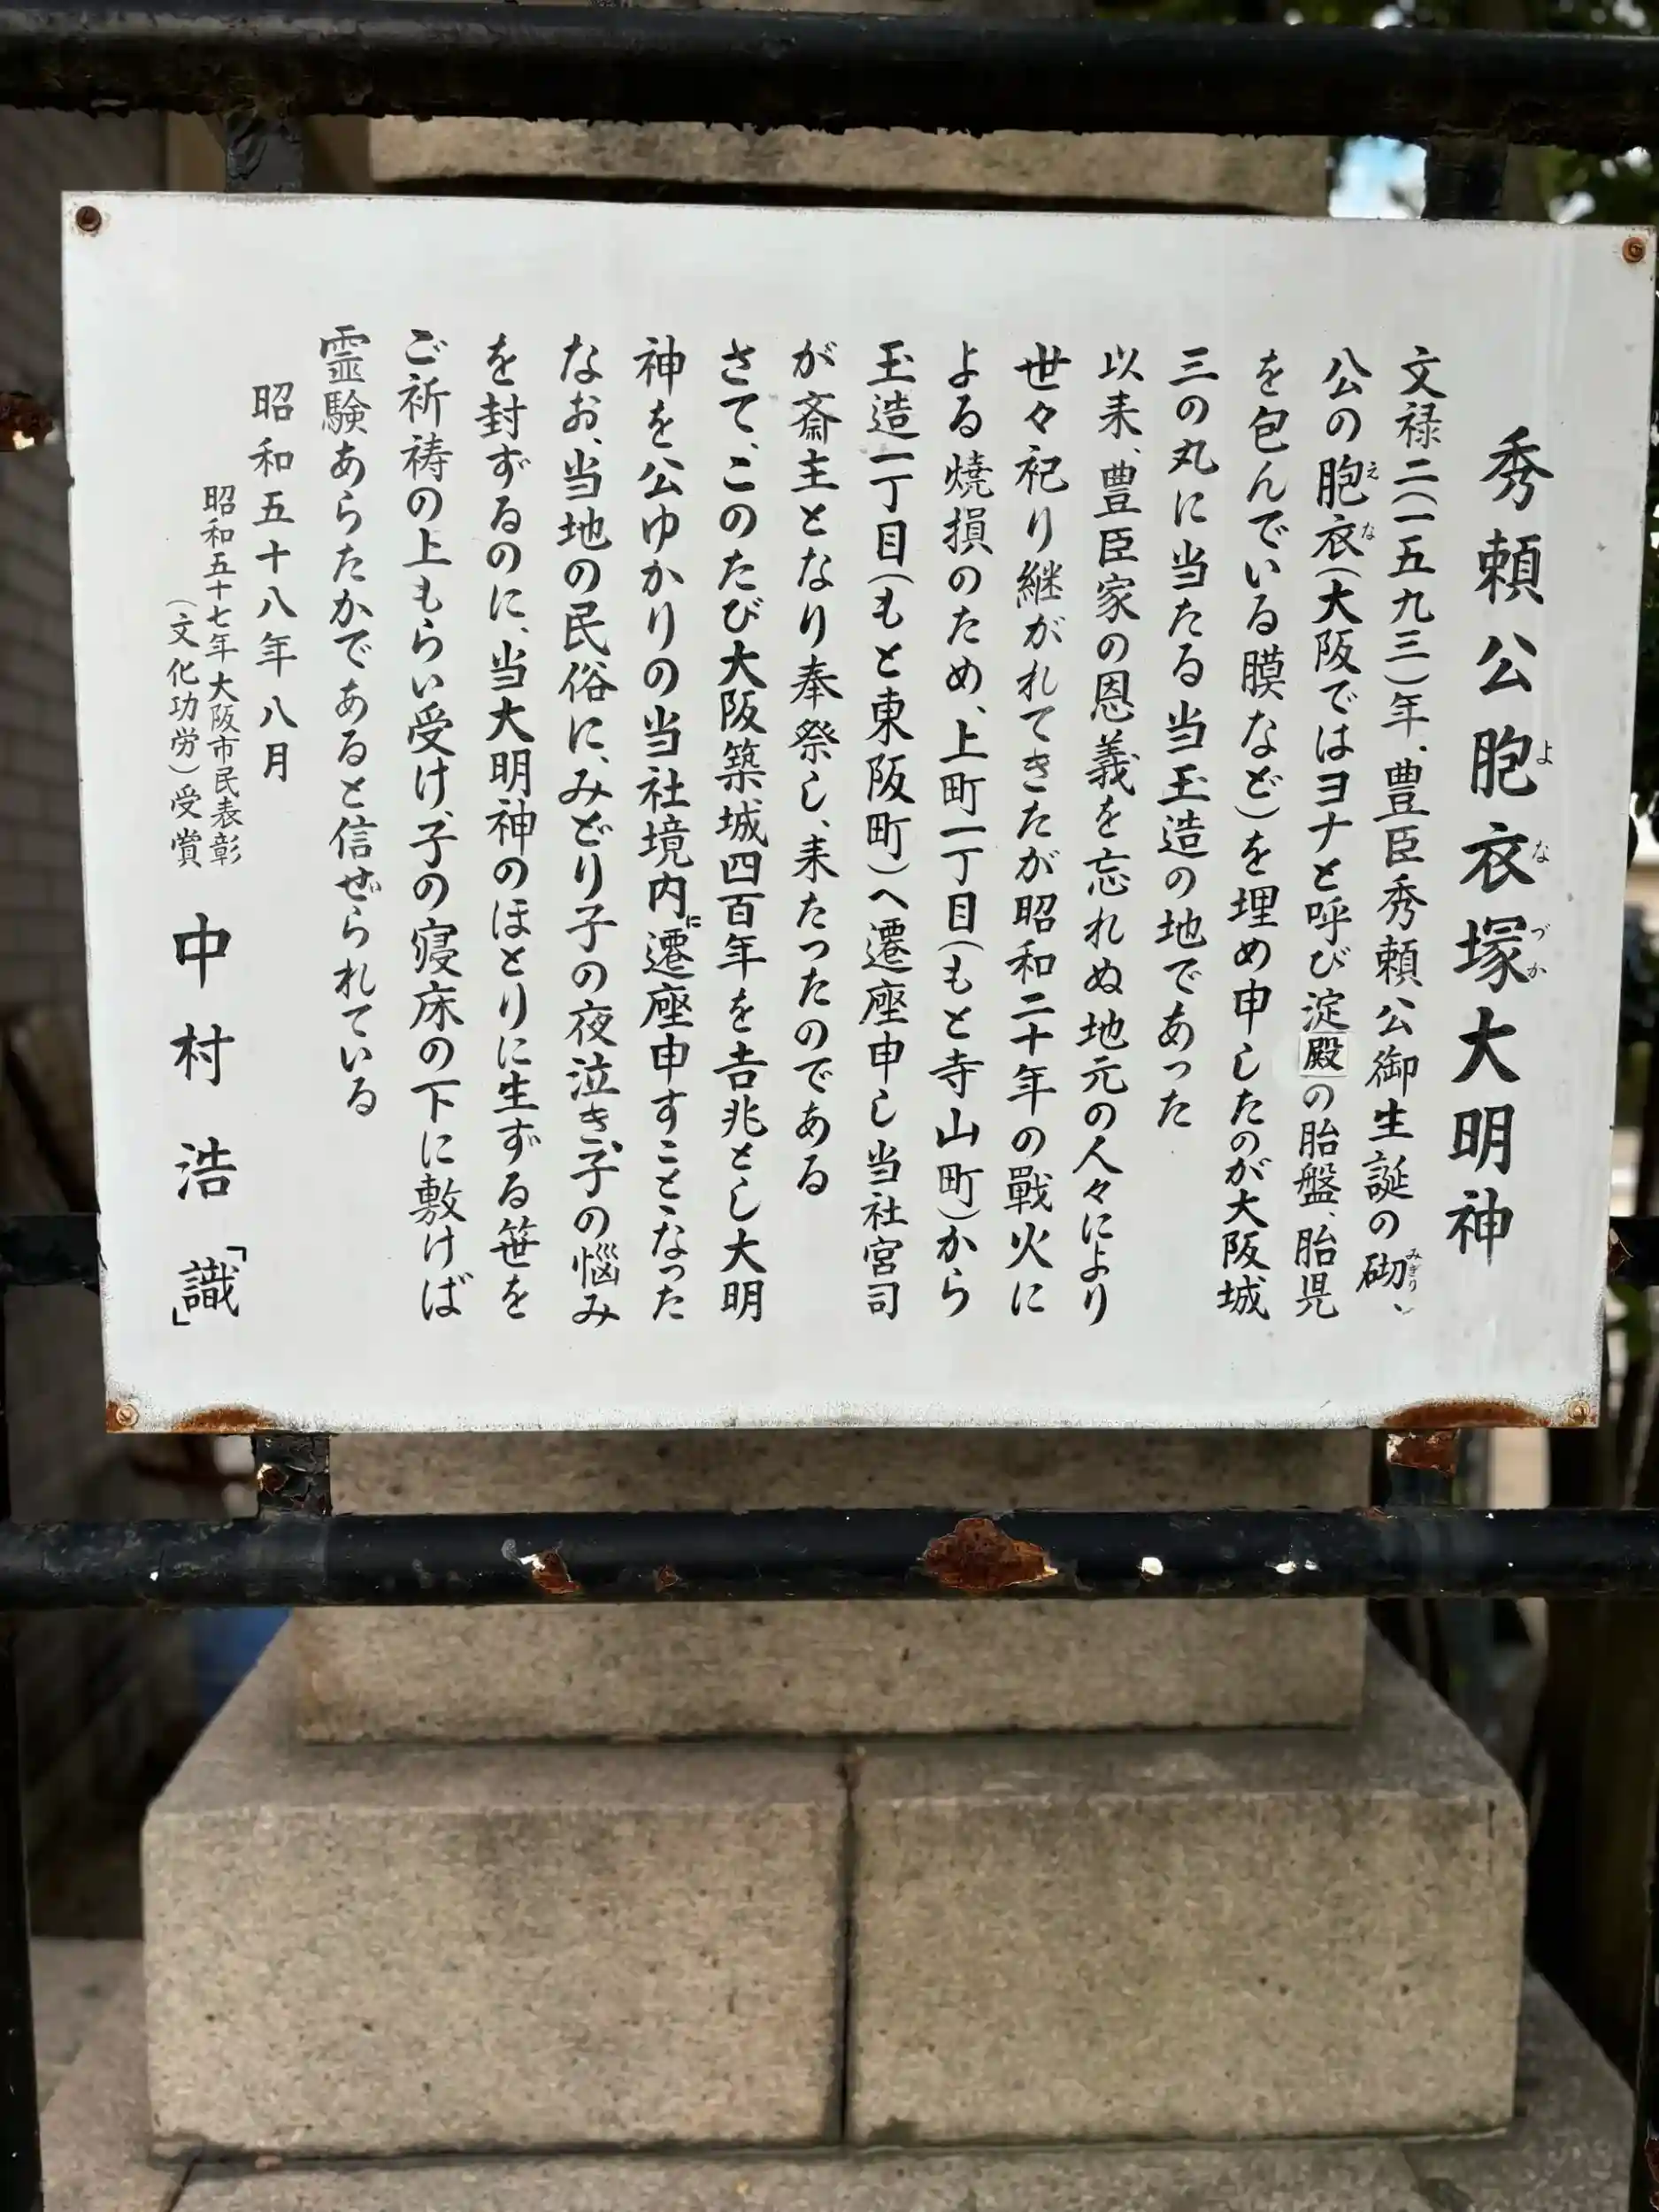 秀頼公胞衣塚大明神
文禄二(一五九三)年、豊臣秀頼公御生誕の砌、
公の胞衣(大阪ではヨナと呼び淀殿の胎盤、胎児
を包んでいる膜など)を埋め申したのが大阪城
三の丸に当たる当玉造の地であった
以来、豊臣家の恩義を忘れぬ地元の人々により
世々祀り継がれてきたが昭和二十年の戰火に
よる焼損のため、上町一丁目(もと寺山町)から
玉造一丁目(もと東阪町)へ遷座申し当社宮司
が斎主となり奉祭し、来たったのである
さて、このたび大阪築城四百年を吉兆とし大明
神を公ゆかりの当社境内に遷座申すこととなった
なお、当地の民俗に、みどり子の夜泣き、子の悩み
を封ずるのに、当大明神のほとりに生ずる笹を
ご祈祷の上もらい受け、子の寝床の下に敷けば
霊験あらたかであると信ぜられている
昭和五十八年八月
昭和五十七年大阪市民表彰
(文化功労)受賞
中村浩「識」